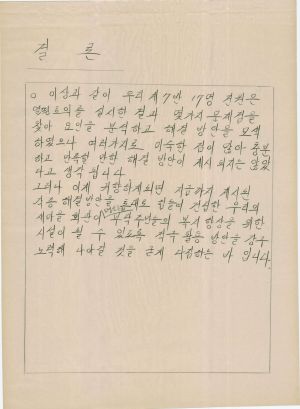 결 론
○ 이상과 같이 우리 제7반 17명 전원은
열띤토의를 실시한 결과 몇가지 문제점을
찾아 요인을 분석하고 해결 방안을 모색
하였으나 여러가지로 미숙한 점이 많아 충분
하고 만족할 만한 해결 방안이 제시 되지는 않았
다고 생각 됩니다.
그러나 이제 귀향하게되면 지금까지 제시된
각종 해결방안을 토대로 힘들여 건립한 우리의
새마을 회관이 부락주민들의 복지 향상을 위한
시설이 될 수 있도록 적극 활용 방안을 강구
노력해 나아갈 것을 굳게 다짐하는 바 입니다.